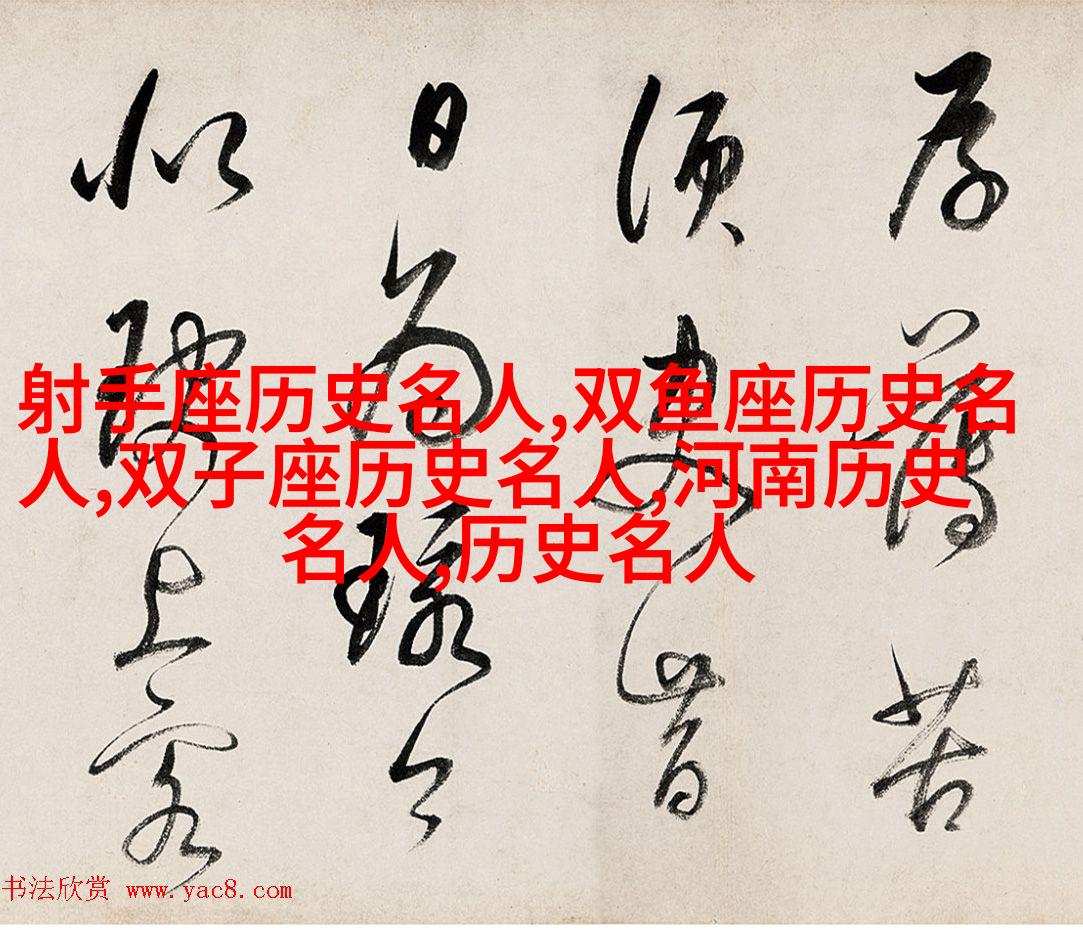 射手座历史名人,双鱼座历史名
人,双子座历史名人,河南历史
名人,历史名人
薄苦
须
日为
似上客
书法欣赏 www.yac8.com